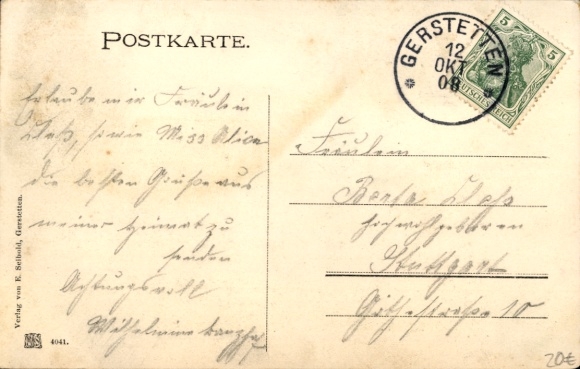 POSTKARTE.
GERSTETTEN
12
OKT
08
5
5
DEUTSCHES REICH
Erlaube mir Fräulein
sowie Miss Alice
die besten Grüße aus
meiner Heimat zu
senden
Achtungsvoll
Wilhelmine
Fräulein
Berta
hochwohlgeboren
Stuttgart
Göthestraße 10
Verlag von E. Seibold, Gerstetten.
4041.
20€